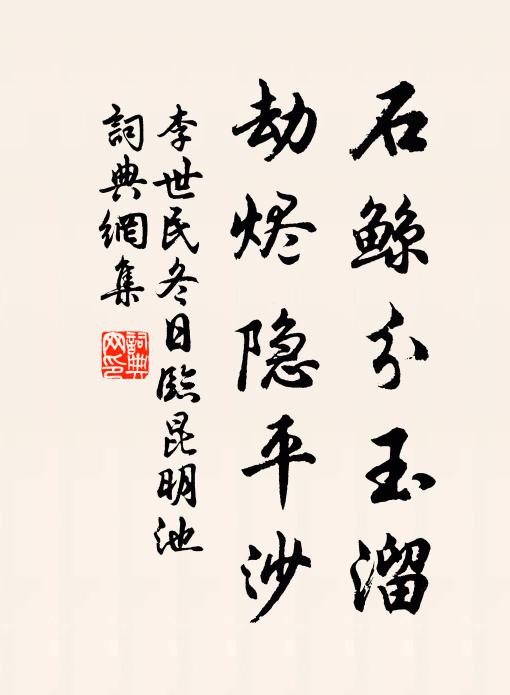 石鲸分玉溜
劫烬隐平沙
李世民冬日臨昆明池
詞典網集
詞典网印